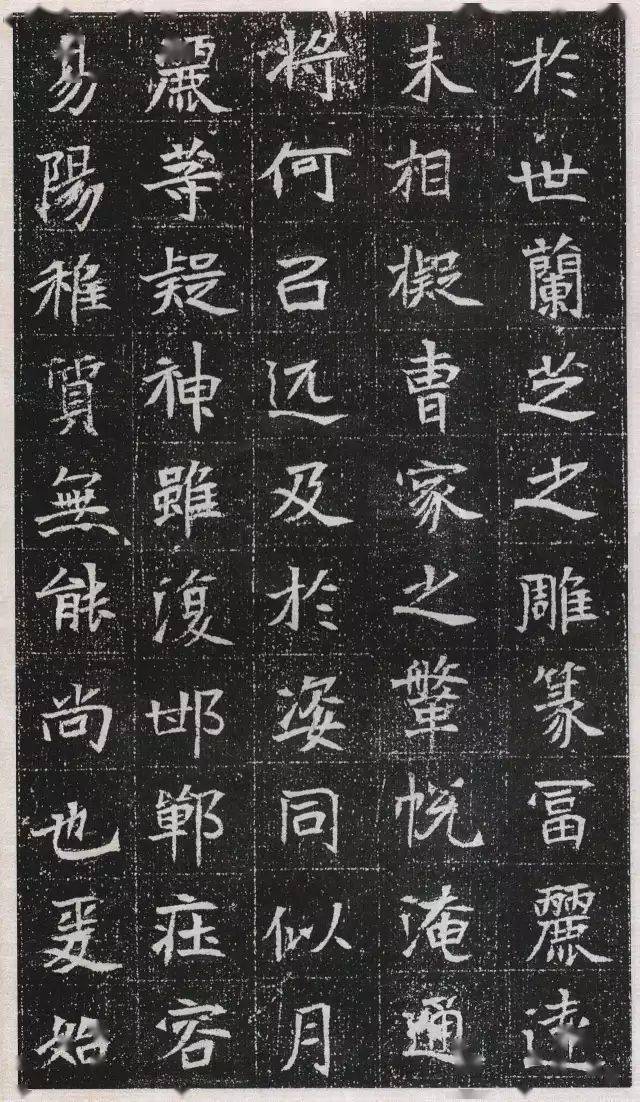 於世蘭芝之雕篆冨麗逺
未相擬曹家之鞶帨淹通
將何㠯远及於姿同似月
麗等疑神雖復邯鄲莊容
易陽稚質無能尚也爰始